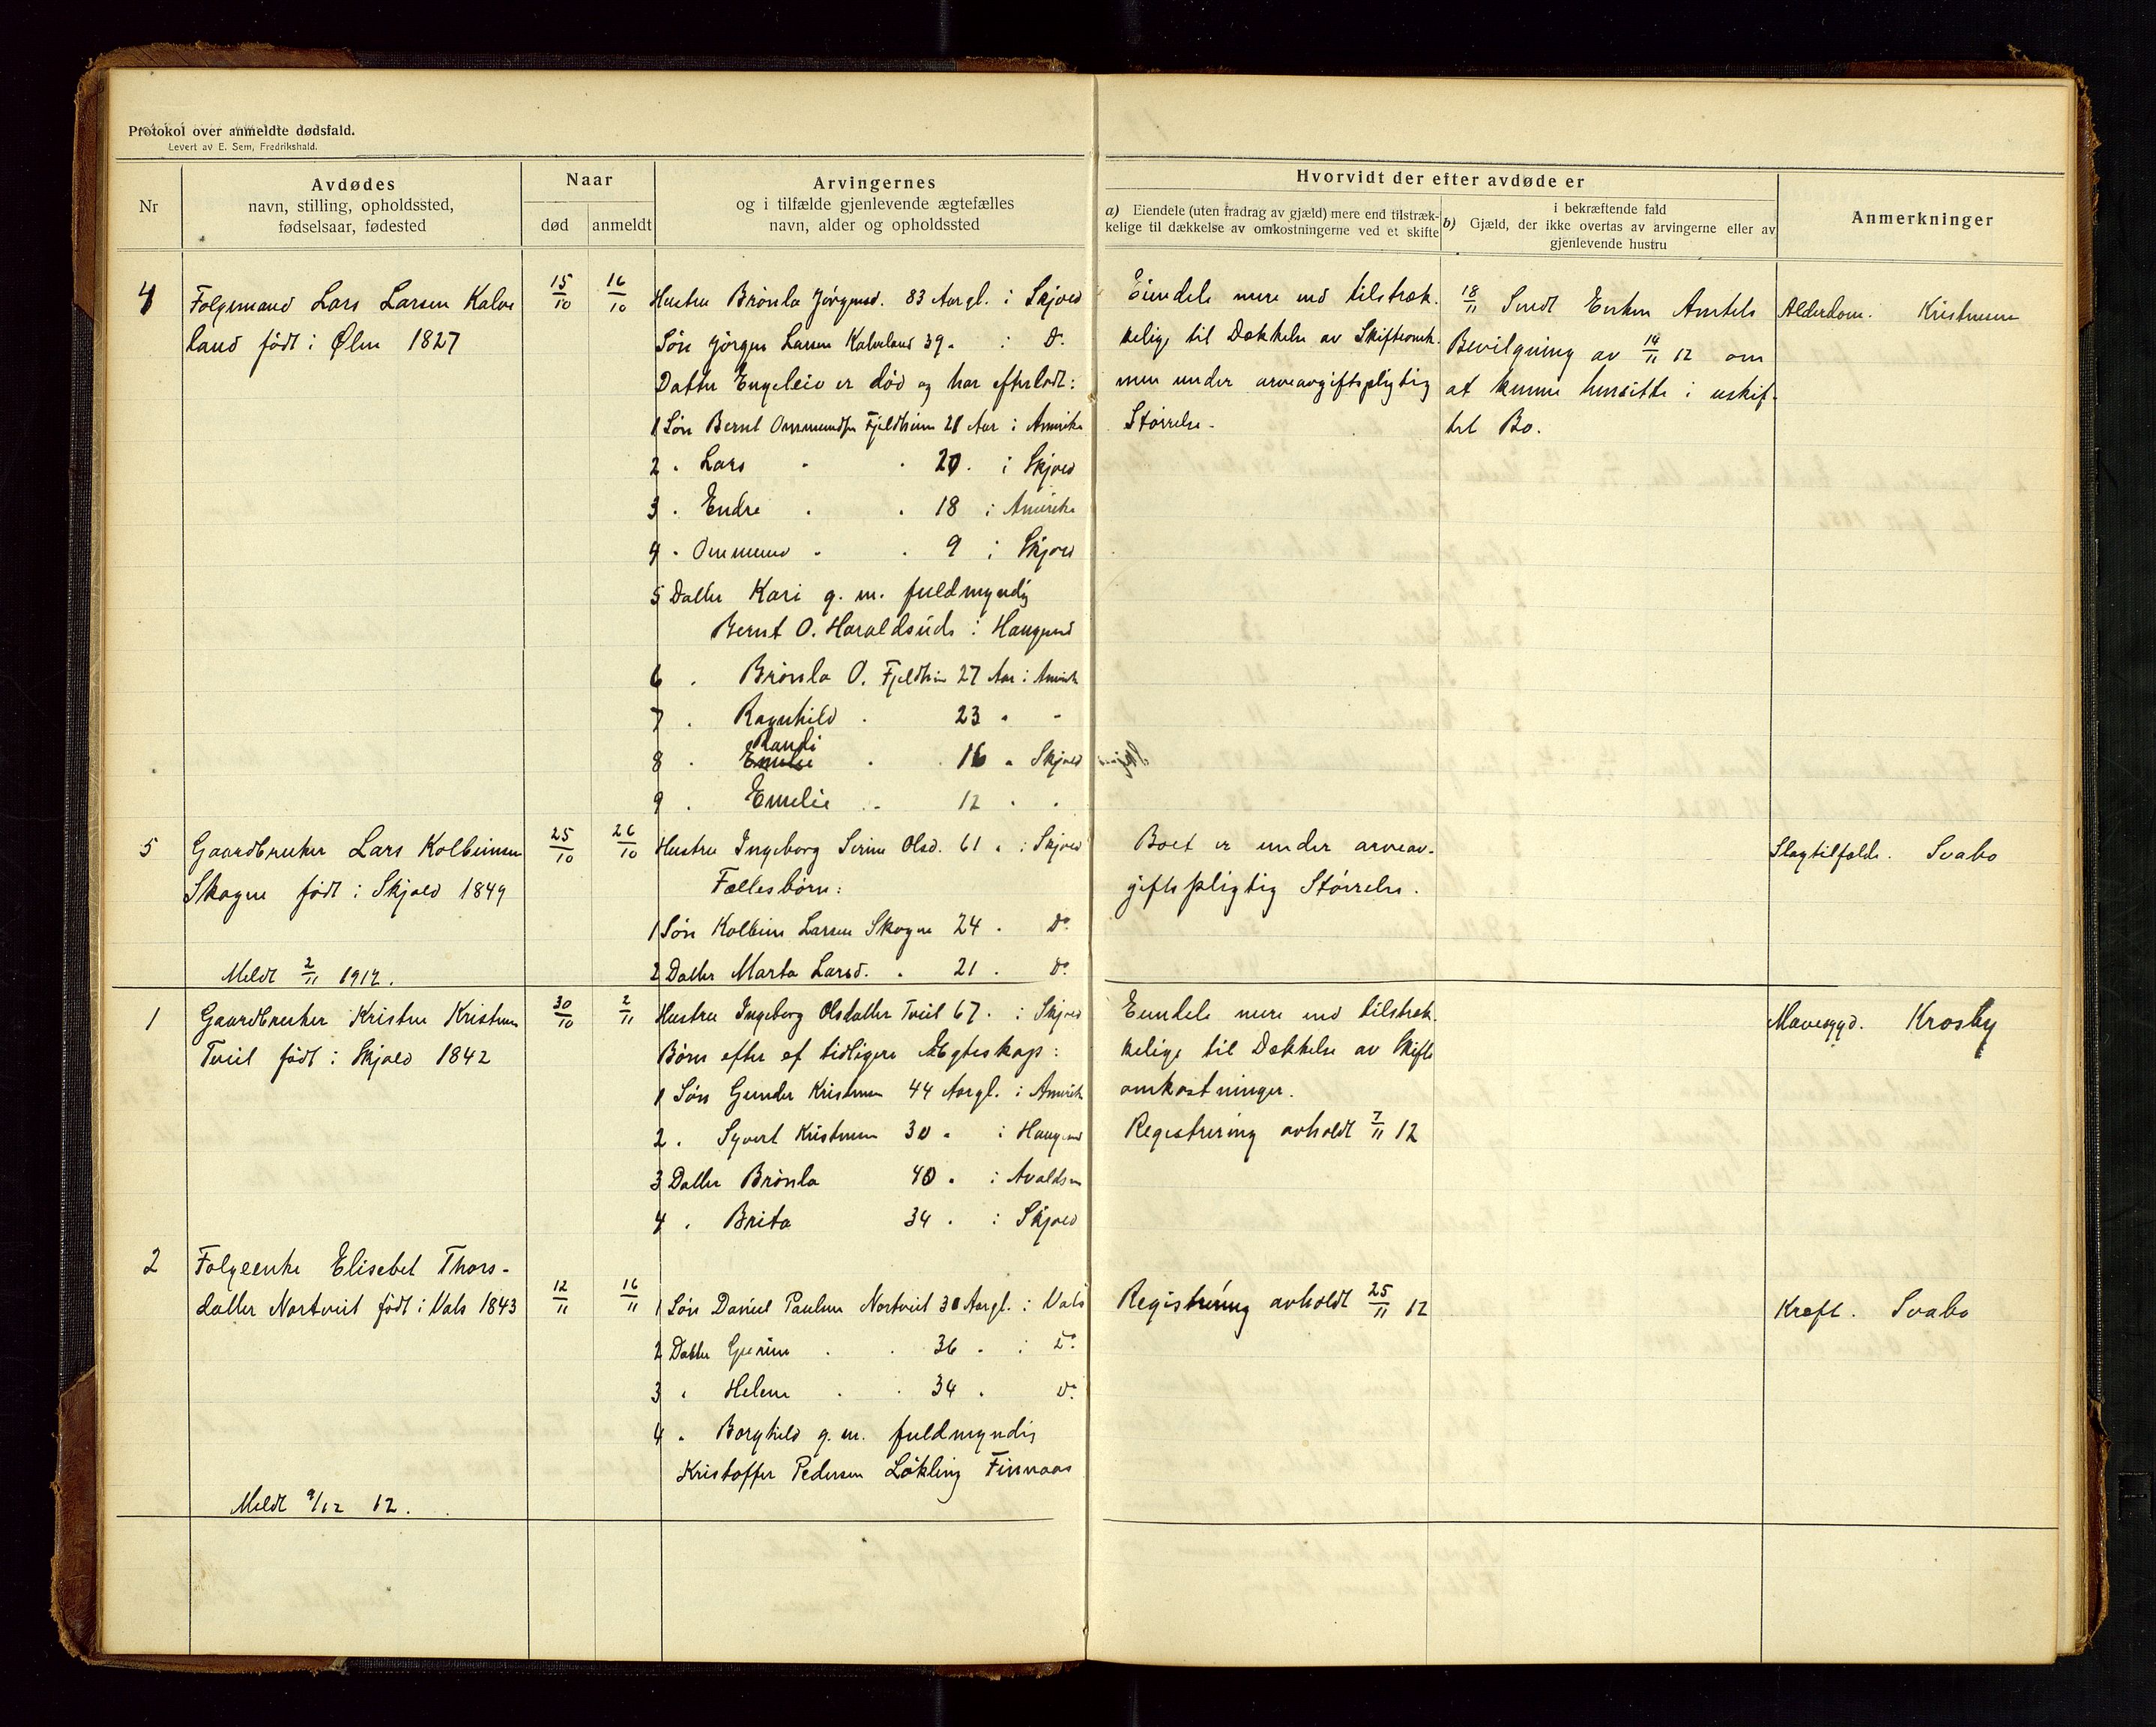 Protokol over anmeldte dødsfald.
Levert av E. Sem, Fredrikshald.
Nr
Avdødes
navn, stilling, opholdssted,
fødselsaar, fødested
Naar
død
anmeldt
Arvingernes
og i tilfælde gjenlevende ægtefælles
navn, alder og opholdssted
Hvorvidt der efter avdøde er
a) Eiendele (uten fradrag av gjæld) mere end tilstræk-
kelige til dækkelse av omkostningerne ved et skifte
i bekræftende fald
b) Gjæld, der ikke overtas av arvingerne eller av
gjenlevende hustru
Anmerkninger
4
Folgemand Lars Larsen Kalve
land født i Ølen 1827
15/10
16/10
Hustru Brønla Jørgensd. 83 Aargl. i Skjold
Søn Jørgen Larsen Kalveland 39 " i Do.
Datter Engeleiv er død og har efterladt:
1 Søn Bernt Ommundsen Fjeldheim 21 Aar i Amerika
2 " Lars " " 20 " i Skjold
3 " Endre " " 18 i Amerika
4 " Ommund " " 9 i Skjold
5 Datter Kari g. m. fuldmyndig
Bernt O. Haraldseide i Haugesund
6 " Brønla O. Fjeldheim 27 Aar i Amerika
7 " Ragnhild " 23 " "
Randi
8 " Emelie " 16 " Skjold
9 " Emelie " 12 " "
Eiendele mere end tilstræk-
kelige til Dækkelse av Skifteomk.
men under arveavgiftspligtig
Størrelse.
18/11 Sendt Enken Amtets
Bevilgning av 14/11 12 om
at kunne hensitte i uskif-
tet Bo.
Alderdom. Kristensen
5
Gaardbruker Lars Kolbeinsen
Skogne født i Skjold 1849
Meldt 2/11 1912.
25/10
26/10
Hustru Ingeborg Serine Olsd. 61 " i Skjold
Fællesbørn:
1 Søn Kolbein Larsen Skogne 24 " Do.
2 Datter Marta Larsd. " 21 " Do.
Boet er under arveav-
giftspligtig Størrelse.
Slagtilfælde. Svabo
1
Gaardbruker Kristen Kristensen
Tveit født i Skjold 1842
30/10
2/11
Hustru Ingeborg Olsdatter Tveit 67 " i Skjold
Børn efter et tidligere Ægteskap:
1 Søn Gunder Kristensen 44 Aargl. i Amerika
2 " Syvert Kristensen 30 " i Haugesund
3 Datter Brønla 40 " i Avaldsnes
4 " Brita 34 " i Skjold
Eiendele mere end tilstræk-
kelige til Dækkelse av Skifte
omkostninger.
Registrering avholdt 7/11 12
Mavesygd. Krosby
2
Folgeenke Elisebet Thors-
datter Nortveit født i Vats 1843
Meldt 9/12 12.
12/11
16/11
1 Søn Daniel Paulsen Nortveit 30 Aargl. i Vats
2 Datter Gurine " " 36 " i Do.
3 " Helene " " 34 " Do.
4 " Borghild g. m. fuldmyndig
Kristoffer Pedersen Løkling Finnaas
Registrering avholdt 25/11 12
Kræft. Svabo